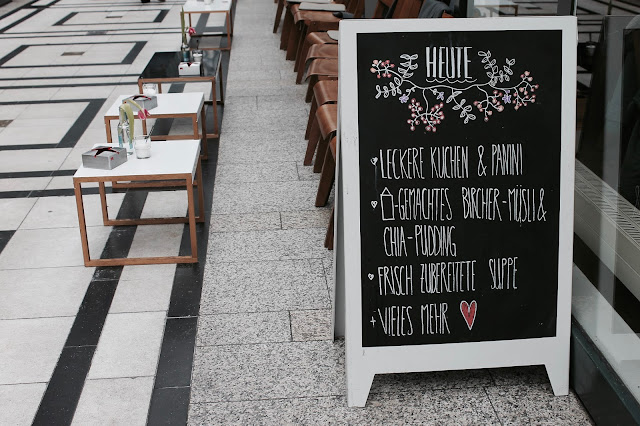 HEUTE
LECKERE KUCHEN & PANINI
-GEMACHTES BIRCHER-MÜSLI &
CHIA-PUDDING
FRISCH ZUBEREITETE SUPPE
+ VIELES MEHR